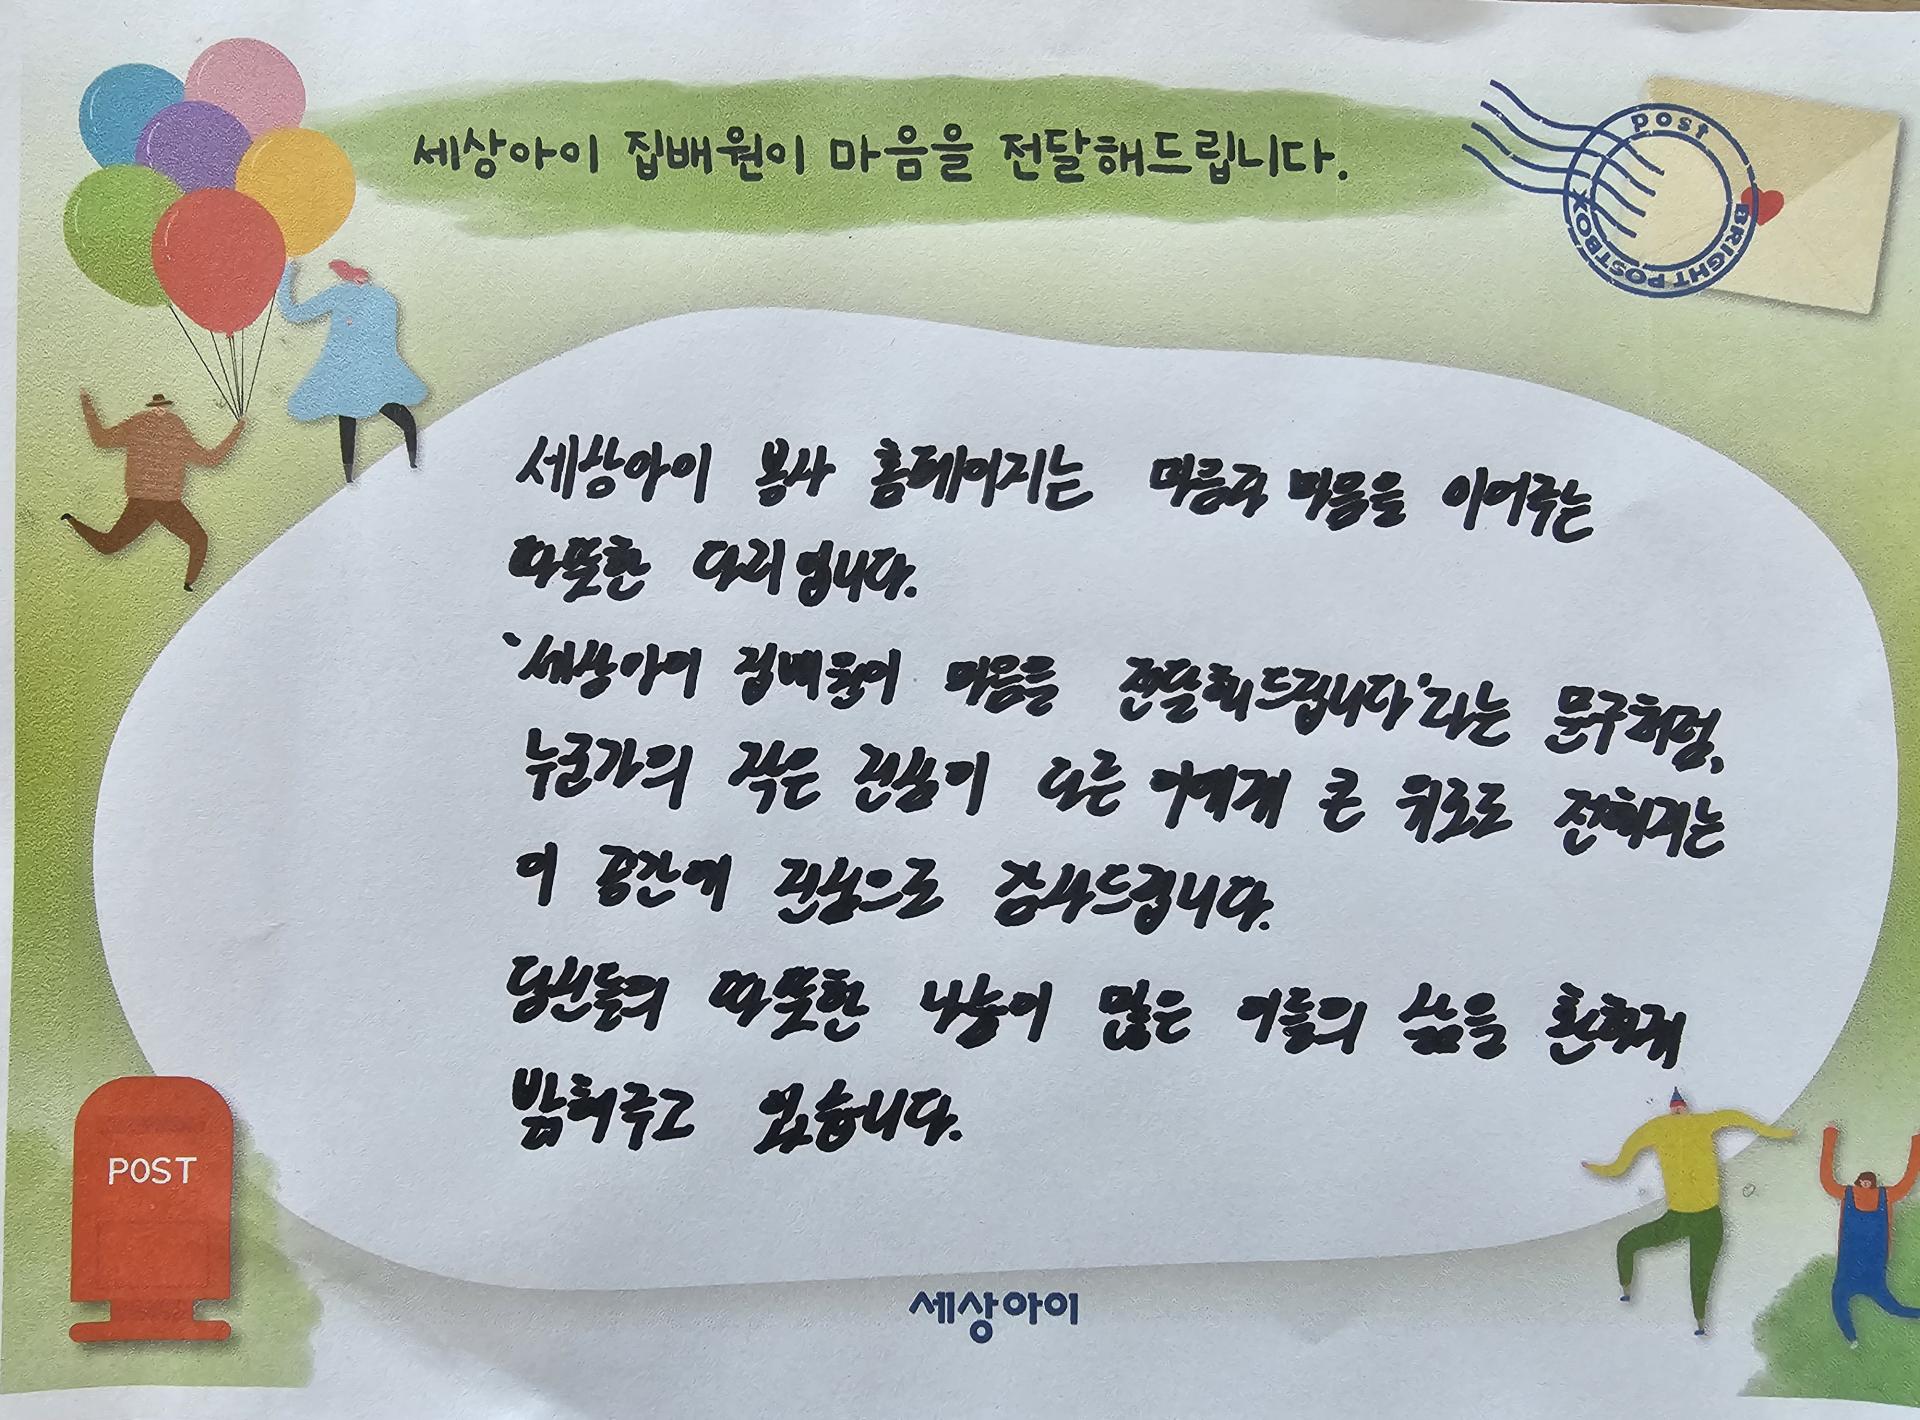 세상아이 집배원이 마음을 전달해드립니다.
post
BRIGHT POSTBOX
세상아이 봉사 홈페이지는 마음과 마음을 이어주는
따뜻한 다리입니다.
'세상아이 집배원이 마음을 전달해드립니다'라는 문구처럼,
누군가의 작은 진심이 다른 이에게 큰 위로로 전해지는
이 공간에 진심으로 감사드립니다.
당신들의 따뜻한 나눔이 많은 이들의 삶을 환하게
밝혀주고 있습니다.
POST
세상아이